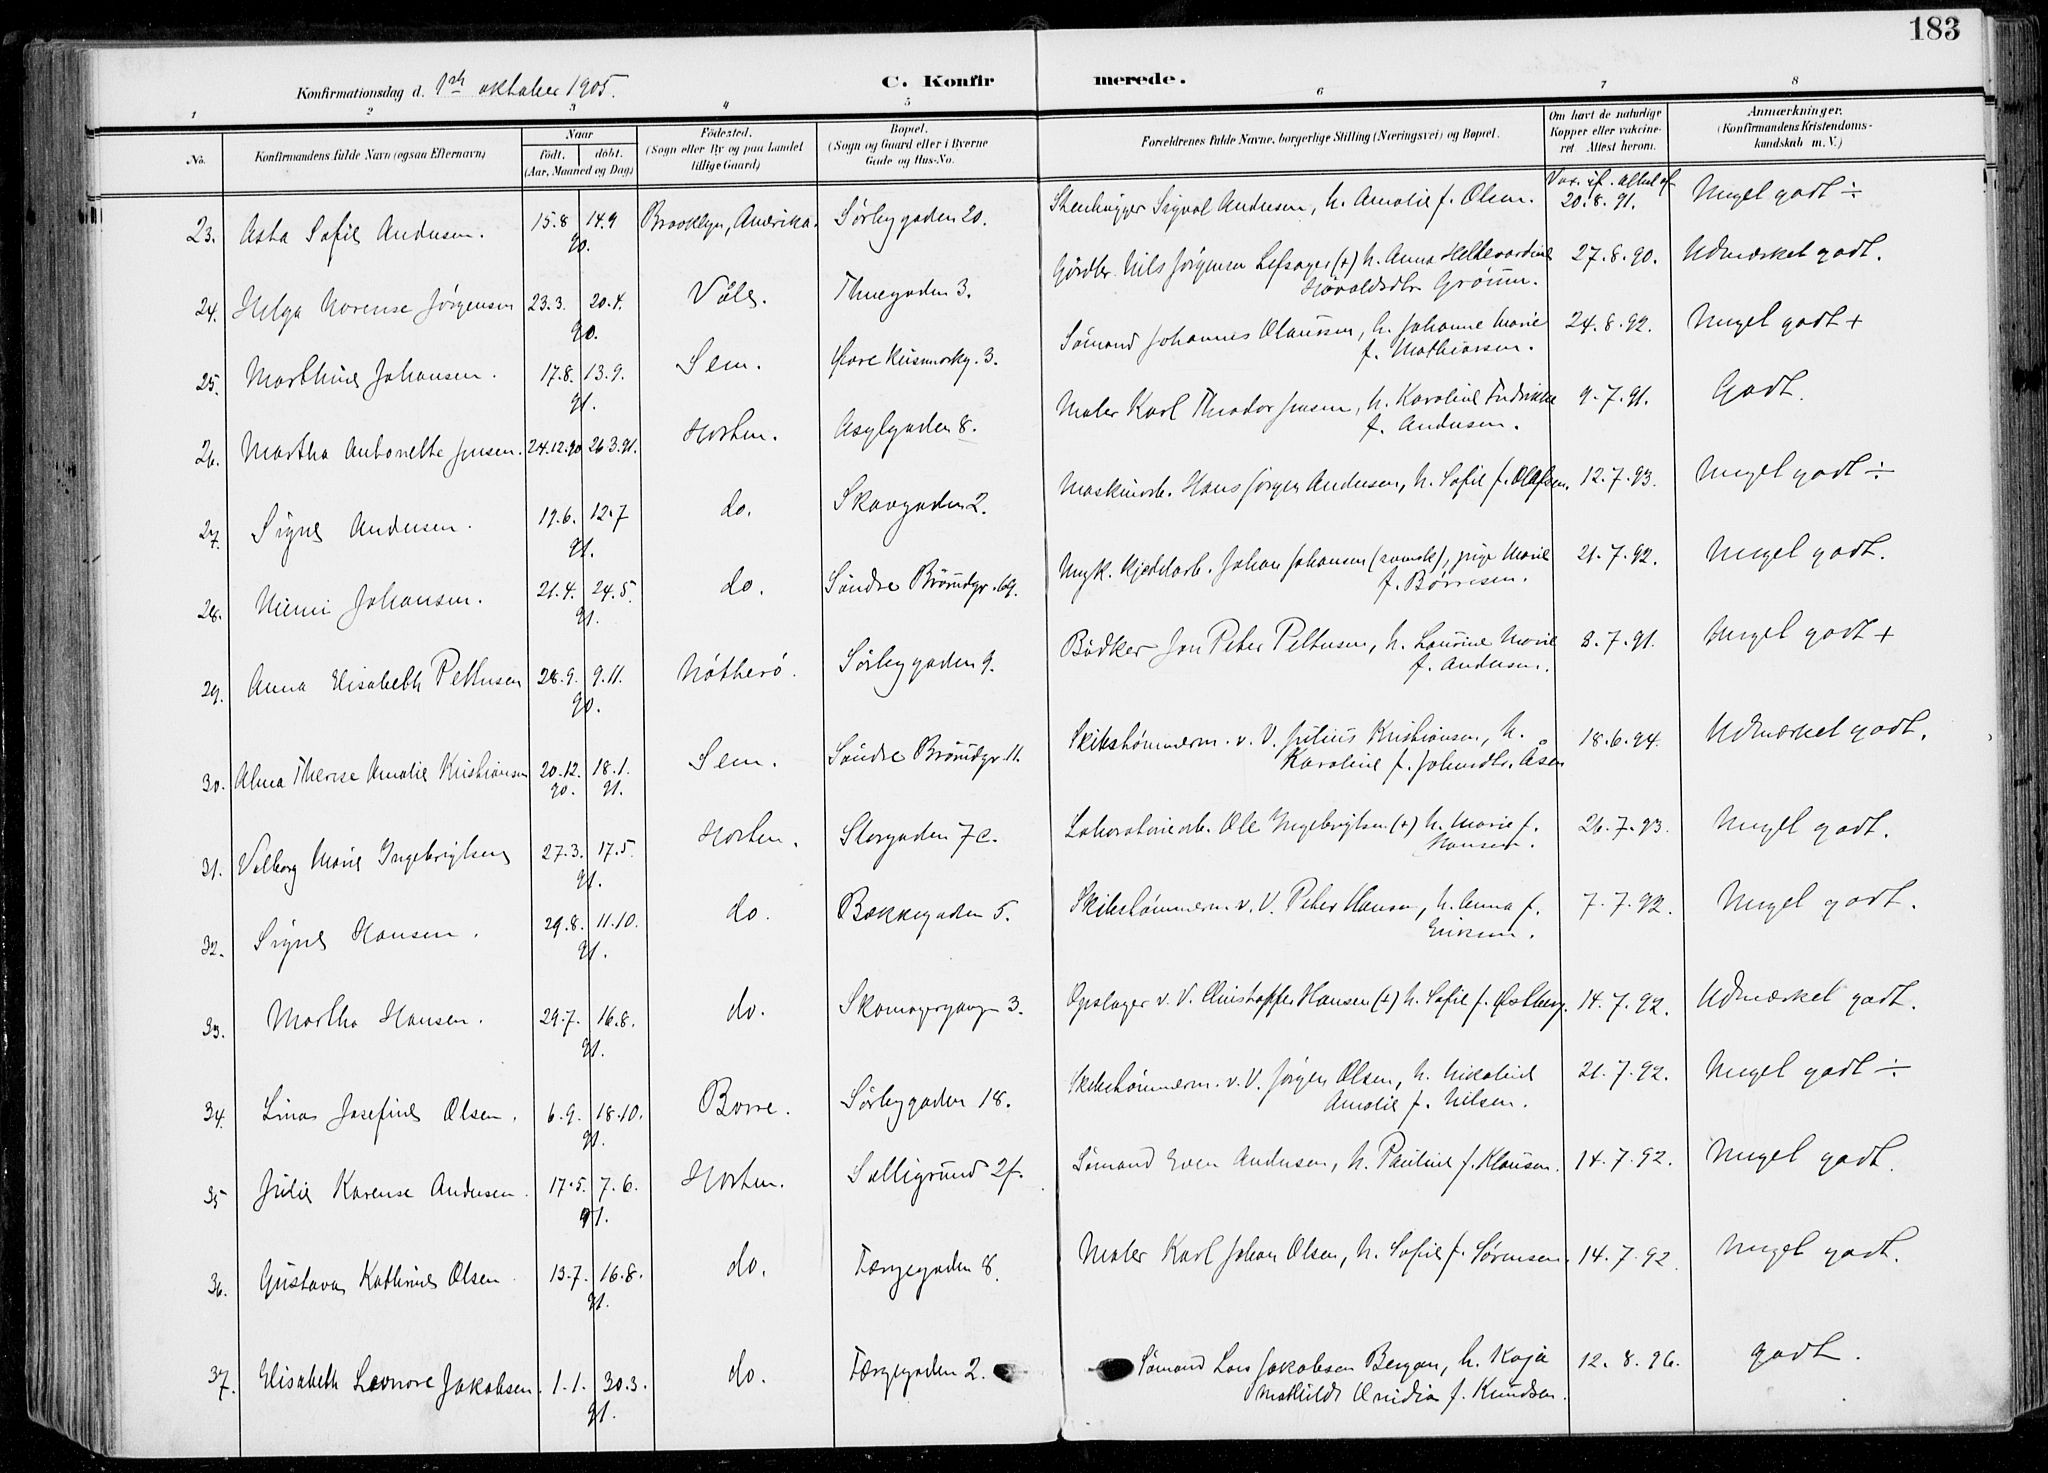 183
Konfirmationsdag d. 1ste oktober 1905.
C. Konfirmerede.
1 2 3 4 5 6 7 8
No. Konfirmandens fulde Navn (ogsaa Efternavn) Naar født. døbt. (Aar, Maaned og Dag) Fødested. (Sogn eller By og paa Landet tillige Gaard) Bopæl. (Sogn og Gaard eller i Byerne Gade og Hus-No. Forældrenes fulde Navne, borgerlige Stilling (Næringsvei) og Bopæl. Om havt de naturlige Kopper eller vakcineret. Attest herom. Anmærkninger. (Konfirmandens Kristendomskundskab m. V.)
23. Asta Sofie Andersen. 15.8 14.9 90. Brooklyn, Amerika. Sørbygaden 20. Stenhugger Sigval Andersen, h. Amalie f. Olsen. Vax. if. attest af 20.8.91. Meget godt ÷
24. Helga Norense Jørgensen 23.3. 20.4. 90. Våle. Thuegaden 3. Gördler Nils Jørgensen (+) h. Anna Håvaldsdtr. 27.8.90. Udmærket godt.
25. Marthine Johansen. 17.8. 13.9. 91. Sem. 3. Sömand Johannes Olaussen, h. Johanne Marie f. Mathiassen. 24.8.92. Meget godt +
26. Martha Antonette Jensen. 24.12.90 26.3.91. Horten. Asylgaden 8. Maler Karl Theodor Jensen, h. Karoline Fredrikke f. Andersen. 9.7.91. Godt.
27. Signe Andersen. 19.6. 12.7 91. do. Skavgaden 2. Maskinarb. Hans Jørgen Andersen, h. Sofie f. Olafsen. 12.7.93. Meget godt ÷
28. Mimi Johansen. 21.4. 24.5. 91. do. Söndre Bröndgr. 69. Ungk. Kjedelarb. Johan Johansen (svensk), pige Marie f. Börresen. 21.7.92. Meget godt.
29. Anna Elisabeth Pettersen 28.9. 9.11. 90. Nötterö. Sørbygaden 9. Bödker Jon Peter Pettersen, h. Laurine Marie f. Andersen. 8.7.91. Meget godt +
30. Alma Therese Amalie Kristiansen 20.12. 90. 18.1. 91. Sem. Söndre Bröndgr. 11. Skibstömmerm. v. V. Julius Kristiansen, h. Karoline f. Johnsdtr. Åsen 18.6.94. Udmærket godt.
31. Valborg Marie Ingebrigtsen 27.3. 17.5. 91. Horten. Storgaden 7c. Laboratoriearb. Ole Ingebrigtsen (+) h. Marie f. Hansen. 26.7.93. Meget godt.
32. Signe Hansen. 29.8. 11.10. 91. do. Bækkegaden 5. Skibstömmerm. v. V. Peter Hansen, h. Anna f. Eriksen. 7.7.92. Meget godt.
33. Martha Hansen. 29.7. 16.8. 91. do. Skomagergang 3. Opslager v. V. Christoffer Hansen (+) h. Sofie f. Østberg. 14.7.92. Udmærket godt.
34. Lina Josefine Olsen. 6.9. 18.10. 91. Borre. Sørbygaden 18. Skibstömmerm. v. V. Jørgen Olsen, h. Nikoline Amalie f. Nilsen. 21.7.92. Meget godt ÷
35 Julie Karense Andersen. 17.5. 7.6. 91. Horten. Solligrund 2f. Sömand Even Andersen, h. Pauline f. Klausen. 14.7.92. Meget godt.
36. Gustava Kathrine Olsen. 13.7. 16.8. 91. do. Færgegaden 8. Maler Karl Johan Olsen, h. Sofie f. Sørensen. 14.7.92. Meget godt.
37. Elisabeth Leonore Jakobsen. 1.1. 30.3. 91. do. Færgegaden 2. Sömand Lars Jakobsen Bergan, h. Kaja Mathilde Ovidia f. Knudsen. 12.8.96. godt.